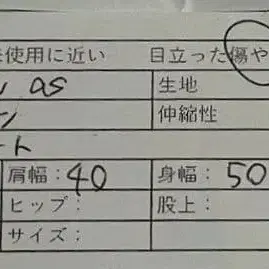 使用に近い 目立った傷や
OS 生地
伸縮性
ート
肩幅：40 身幅：50
ヒップ： 股上：
サイズ：